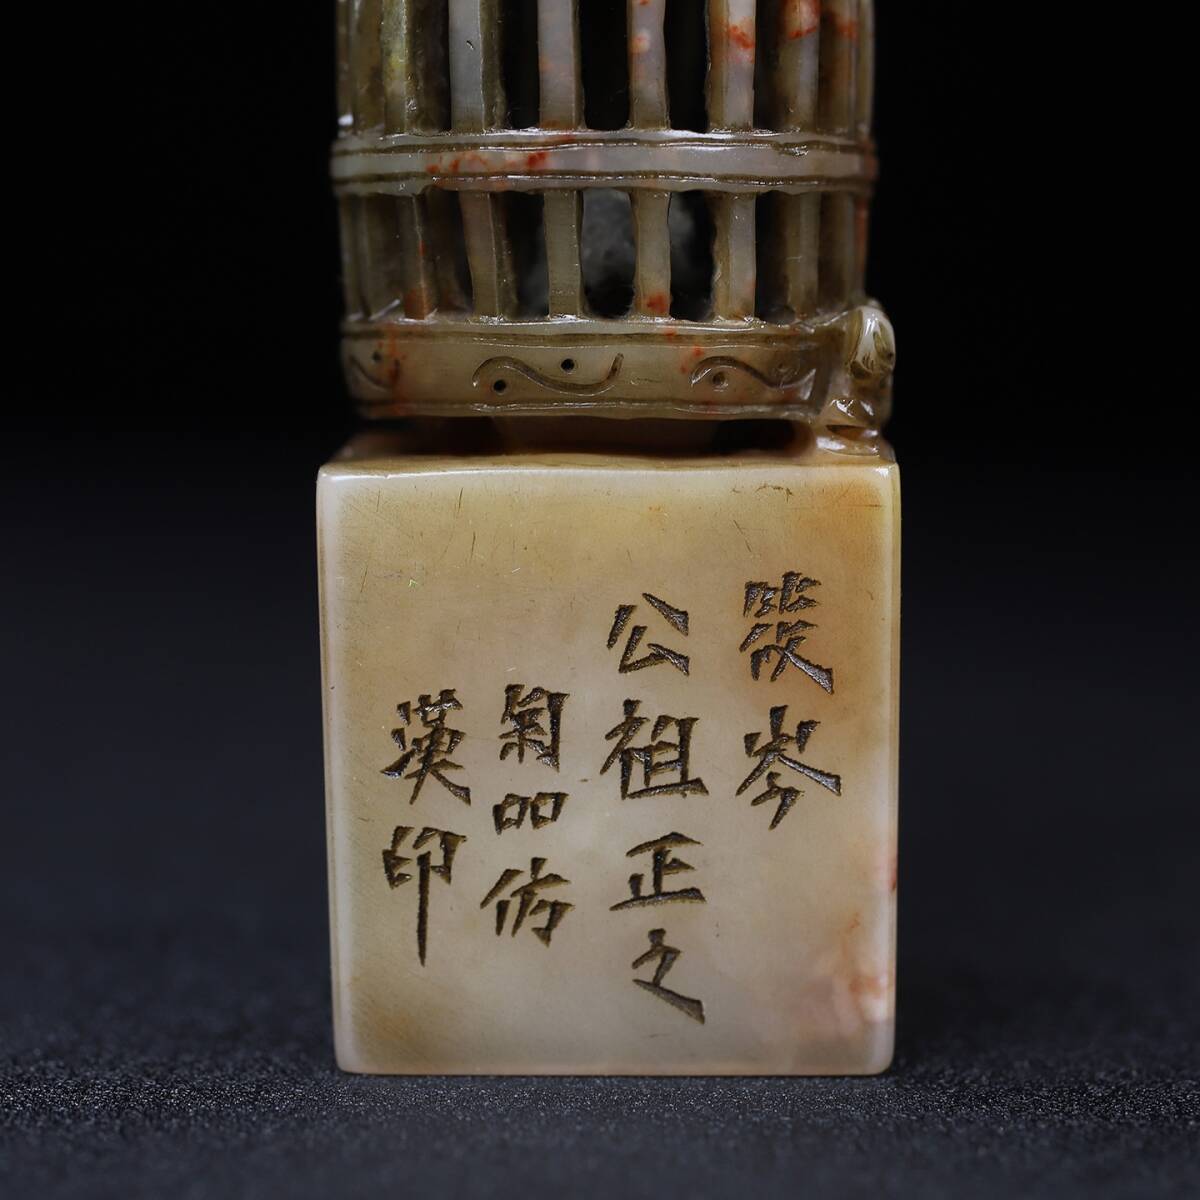 筱岑
公祖正之
匊吅仿
漢印